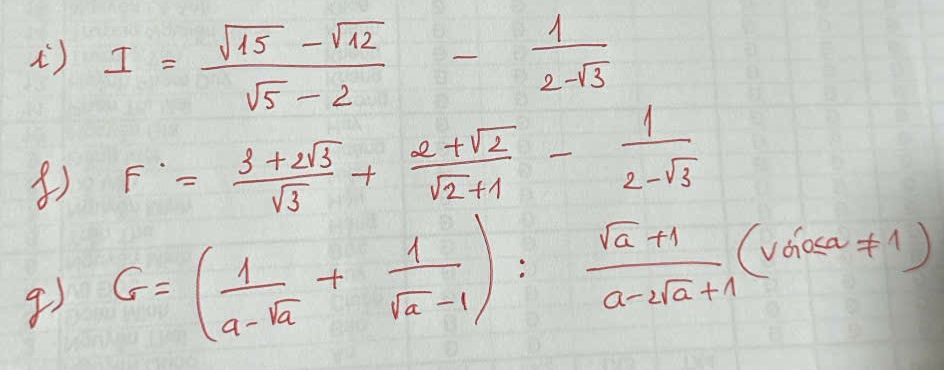 i) I = \frac{\sqrt{15} - \sqrt{12}}{\sqrt{5} - 2} - \frac{1}{2 - \sqrt{3}}
f) F = \frac{3 + 2\sqrt{3}}{\sqrt{3}} + \frac{2 + \sqrt{2}}{\sqrt{2} + 1} - \frac{1}{2 - \sqrt{3}}
g) G = \left( \frac{1}{a - \sqrt{a}} + \frac{1}{\sqrt{a} - 1} \right) : \frac{\sqrt{a} + 1}{a - 2\sqrt{a} + 1} (với 0<a ≠ 1)